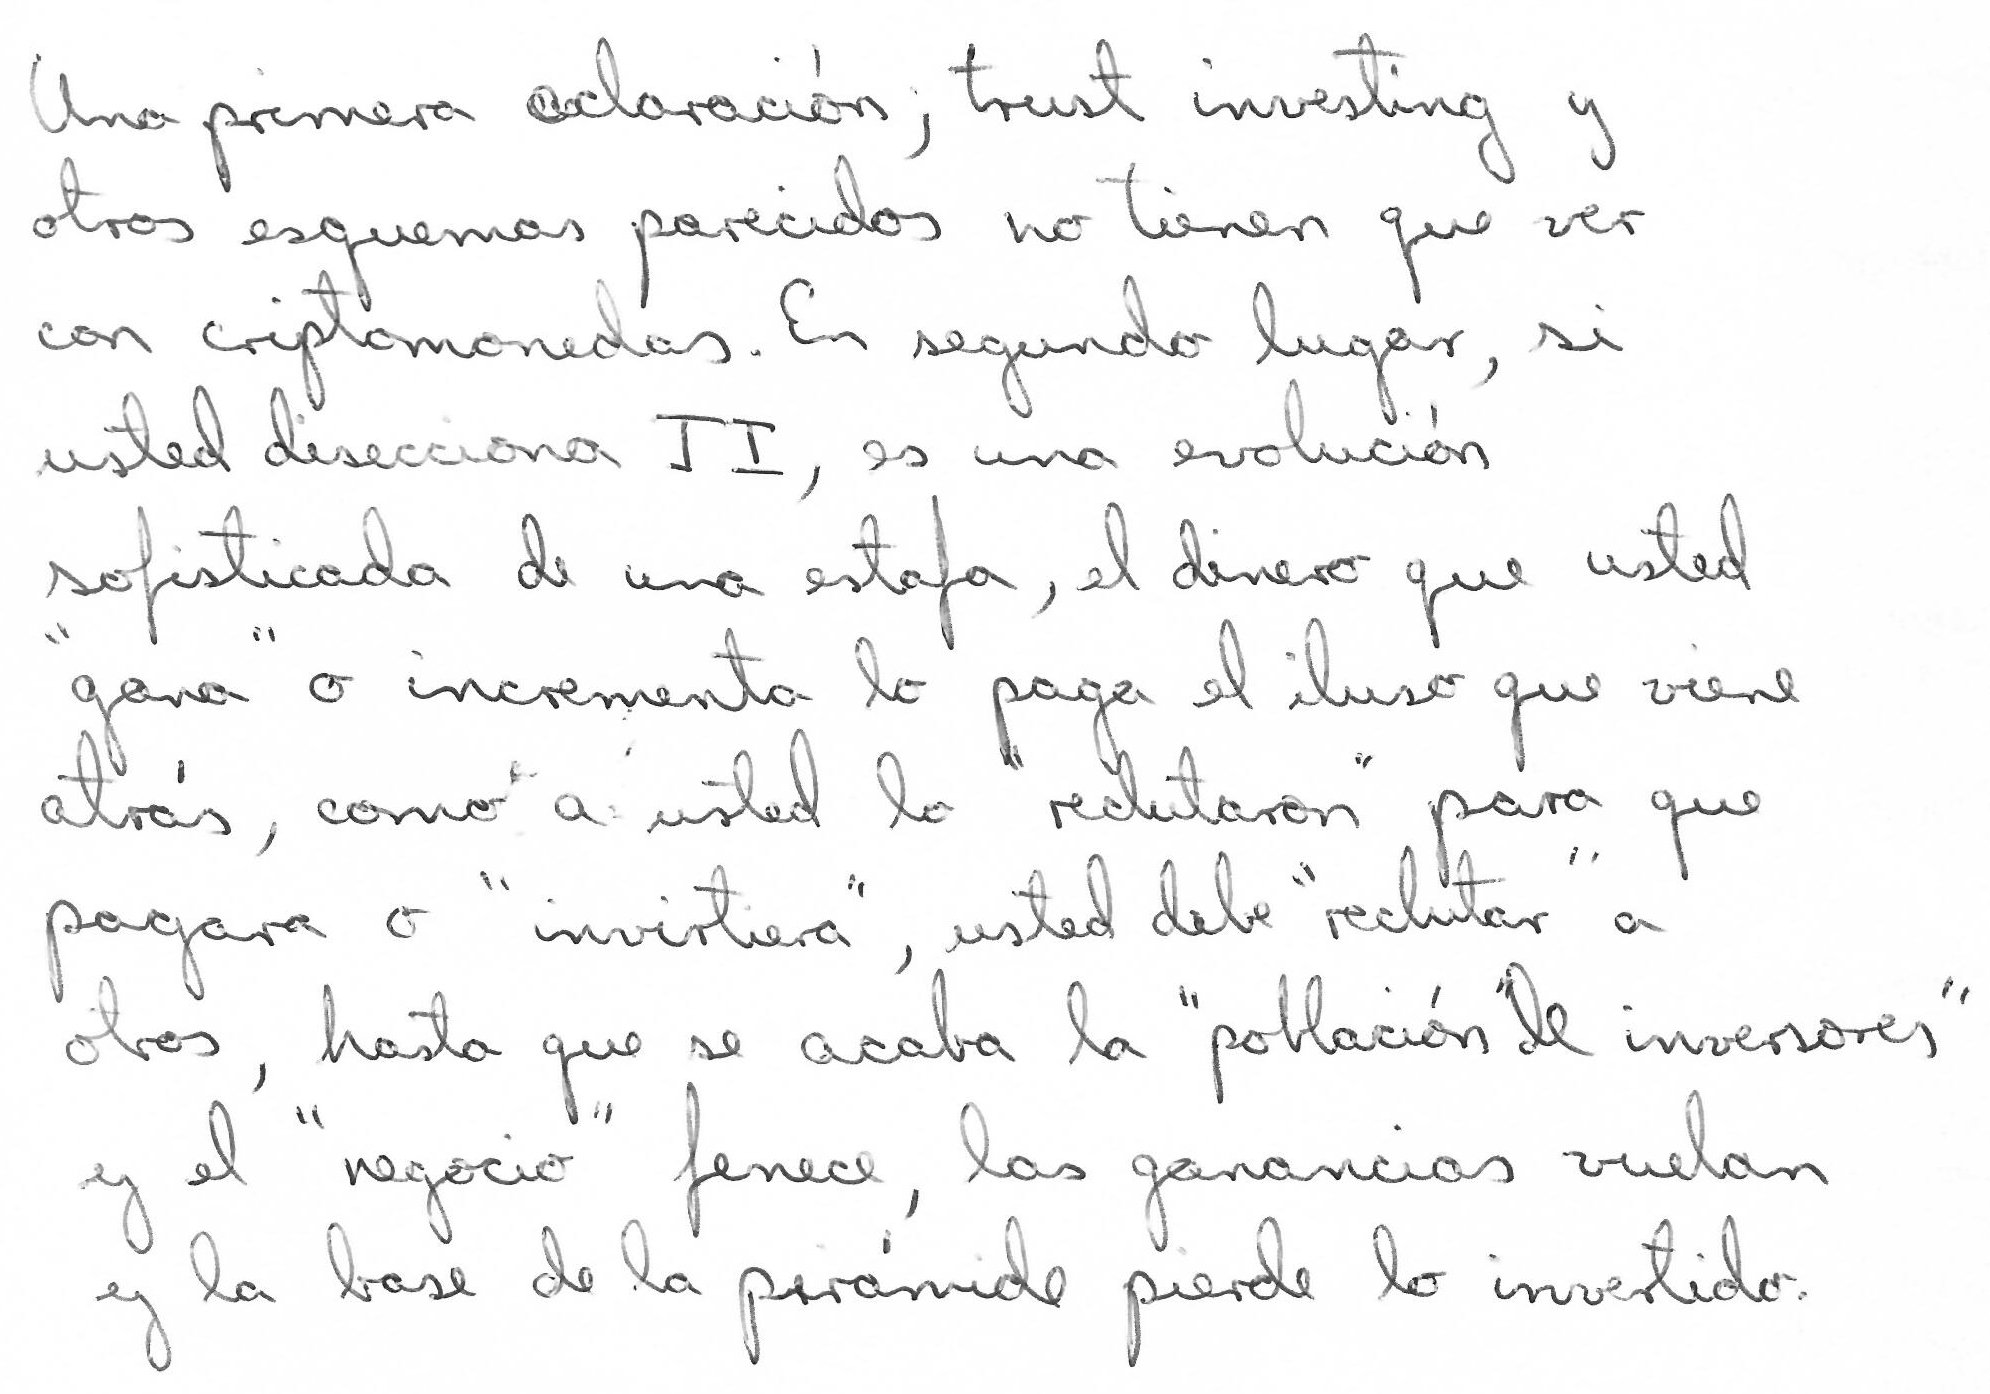 Una primera aclaración, trust investing y
otros esquemas parecidos no tienen que ver
con criptomonedas. En segundo lugar, si
usted disecciona TI, es una evolución
sofisticada de una estafa, el dinero que usted
"gana" o incrementa lo paga el iluso que viene
atrás, como a usted lo "reclutaron" para que
pagara o "invirtiera", usted debe "reclutar" a
otros, hasta que se acaba la "población de inversores"
y el "negocio" fenece, las ganancias vuelan
y la base de la pirámide pierde lo invertido.